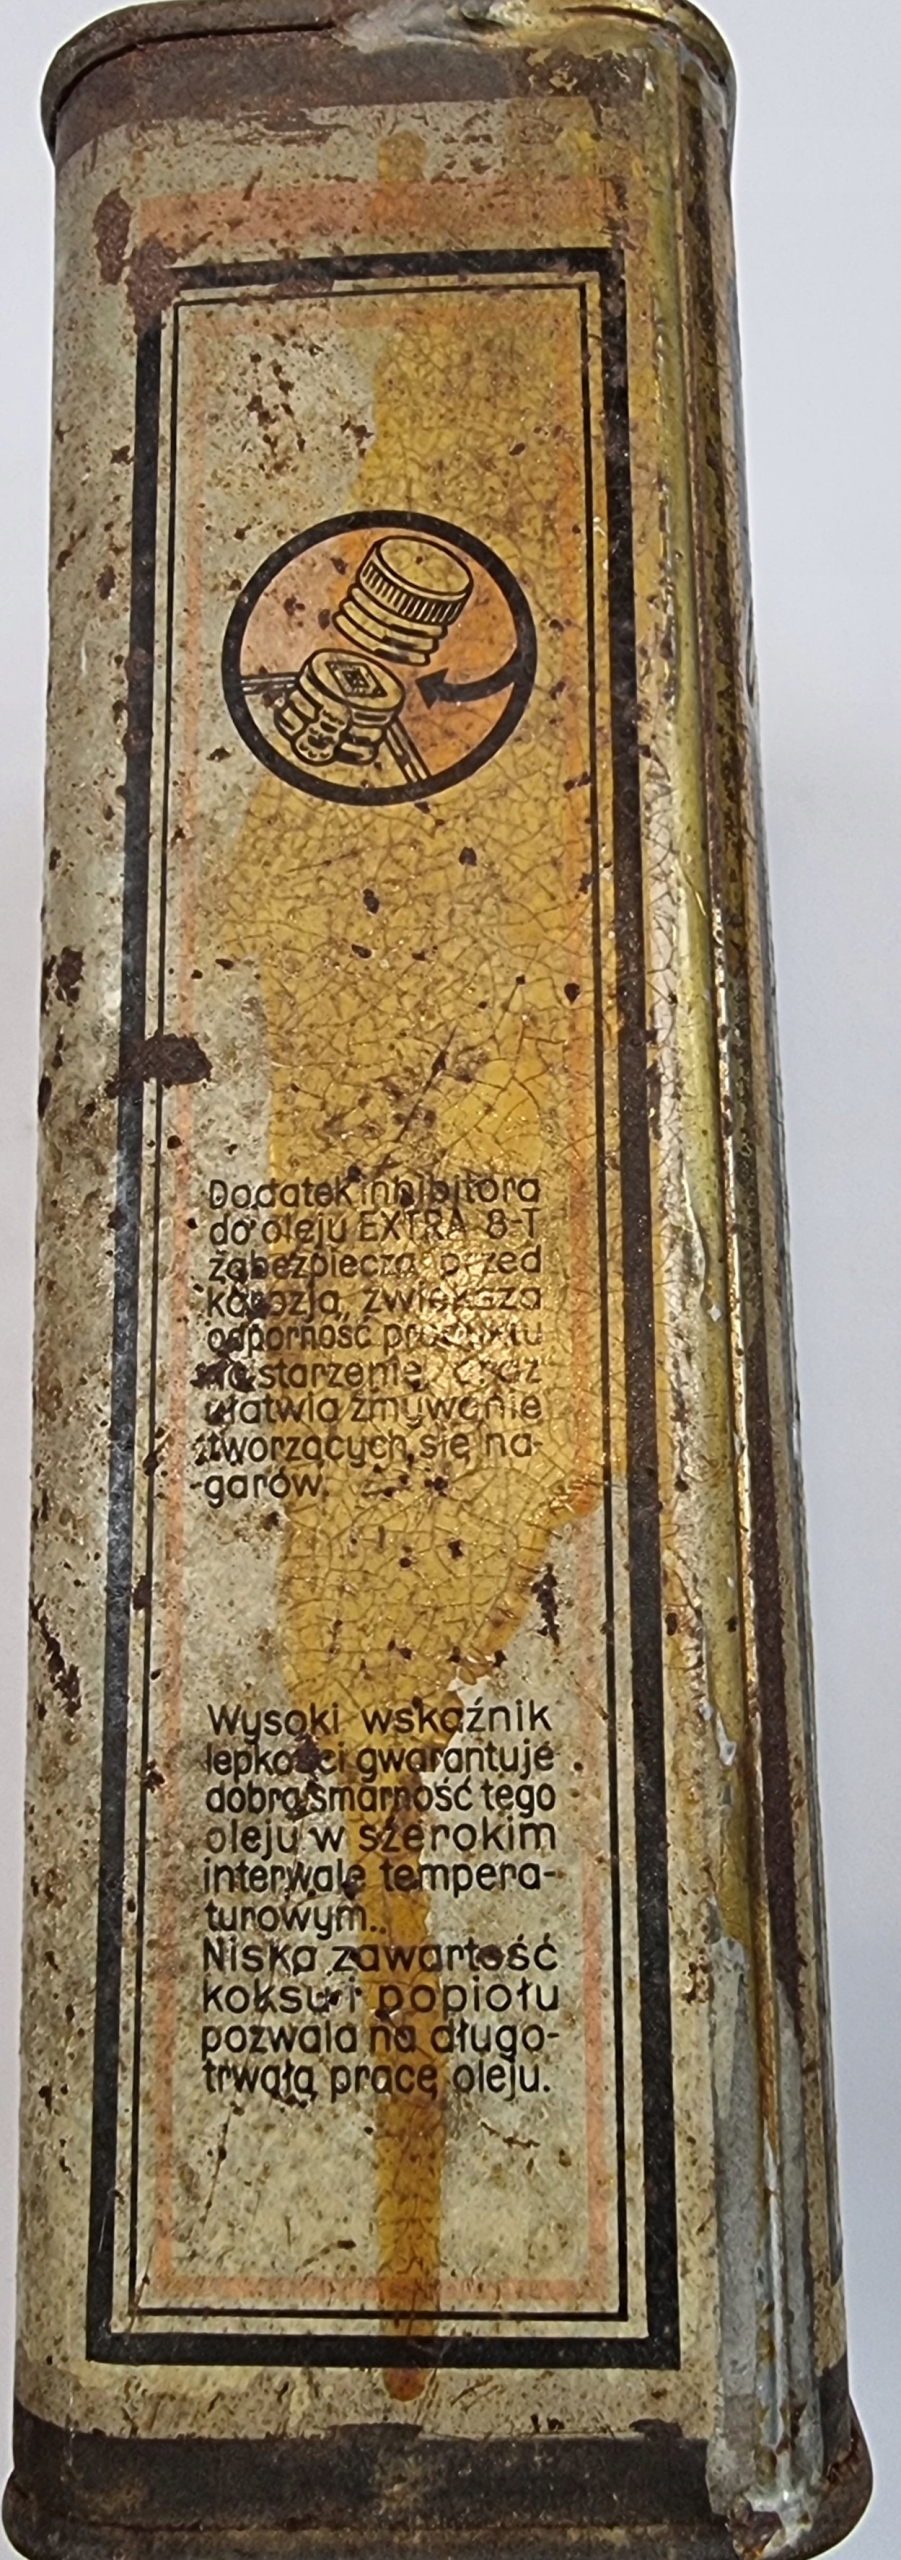 Dodatek inhibitora
do oleju EXTRA 8-T
zabezpiecza przed
korozją, zwiększa
odporność produktu
na starzenie, oraz
ułatwia zmywanie
tworzących się na-
garów.
Wysoki wskaźnik
lepkości gwarantuje
dobrą smarność tego
oleju w szerokim
interwale tempera-
turowym.
Niska zawartość
koksu i popiołu
pozwala na długo-
trwałą pracę oleju.